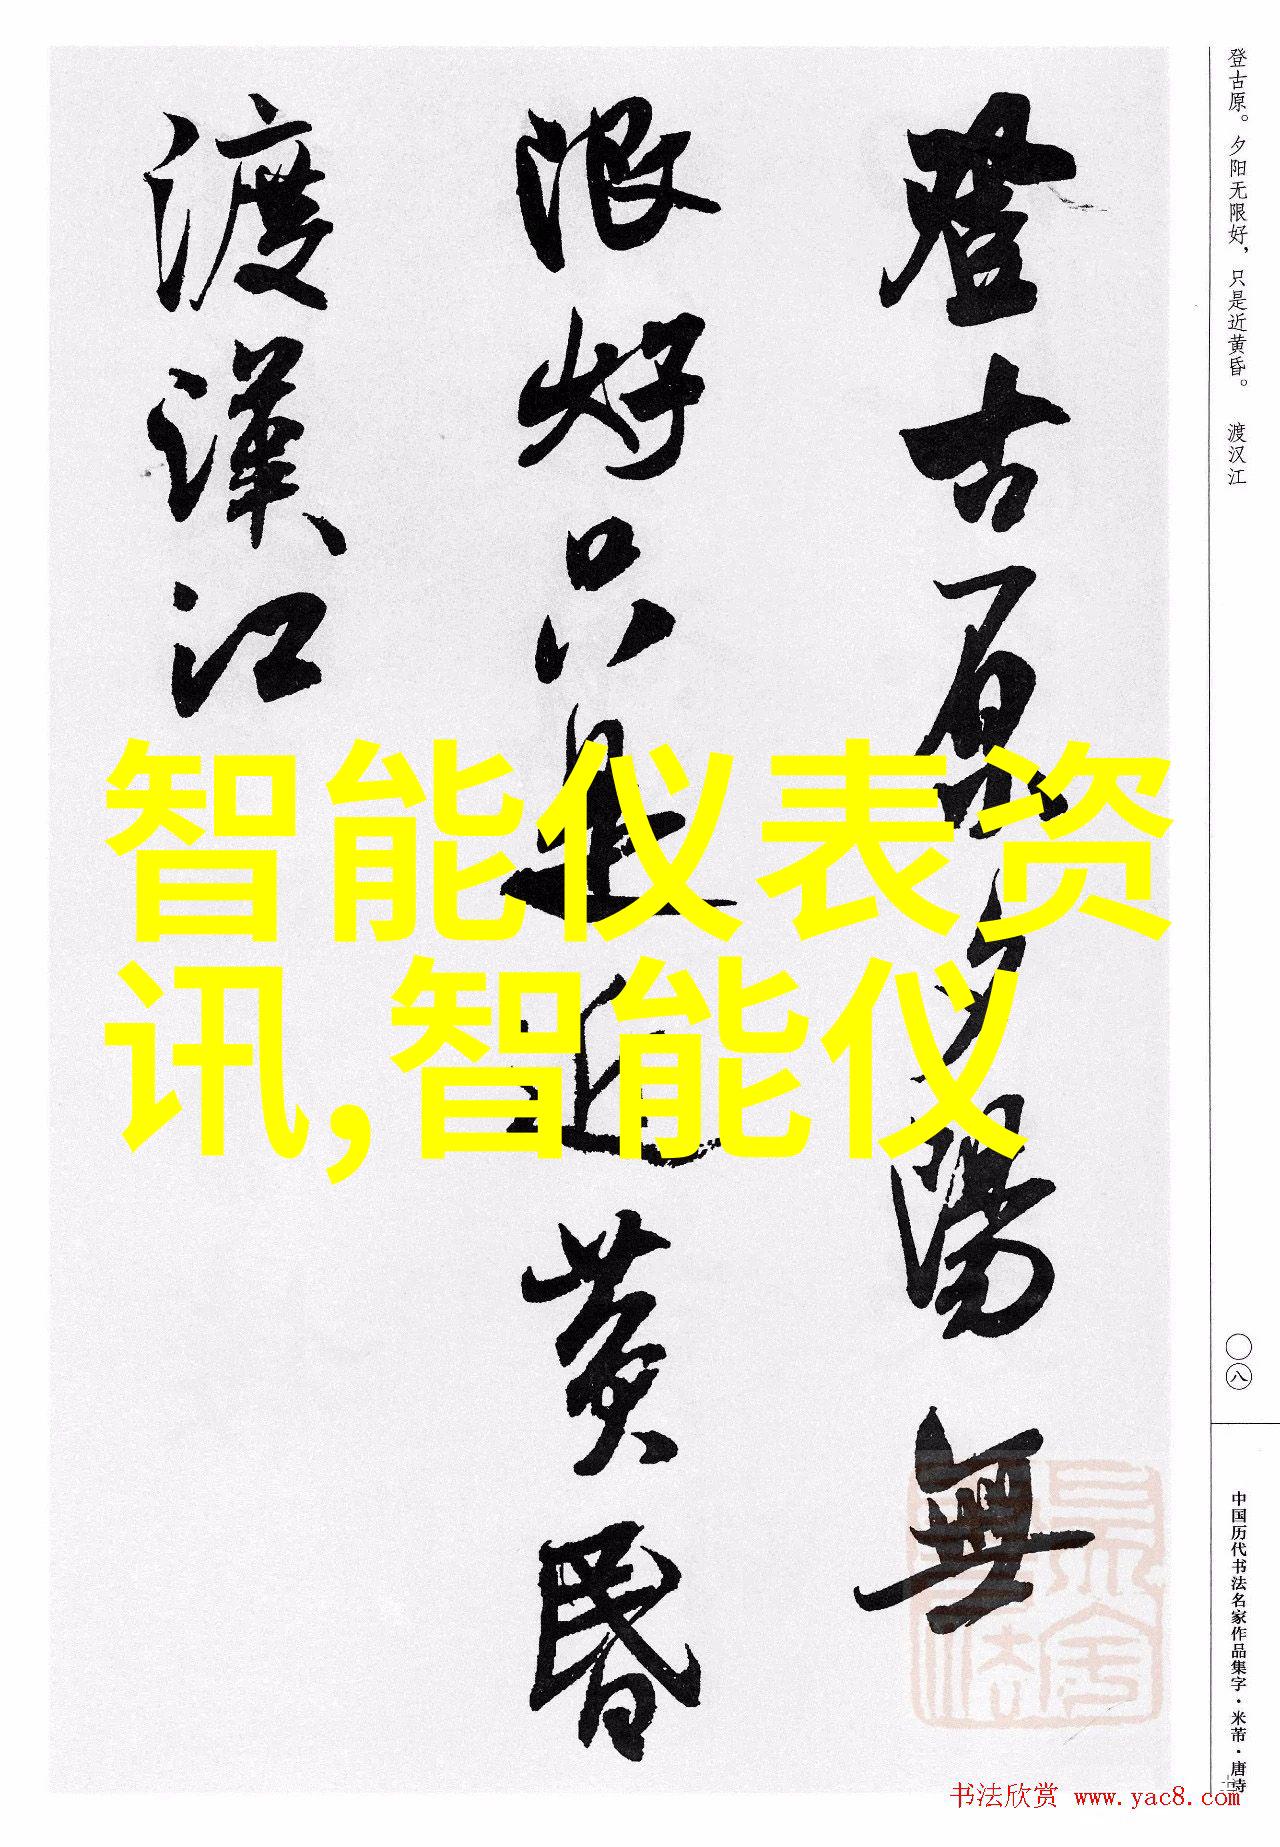 登古原。夕阳无限好，只是近黄昏。 渡汉江
登古原夕陽無
限好只是近黄昏
渡漢江
智能仪表资
讯,智能仪
〇八
中国历代书法名家作品集字·米芾·唐诗
书法欣赏 www.yac8.com